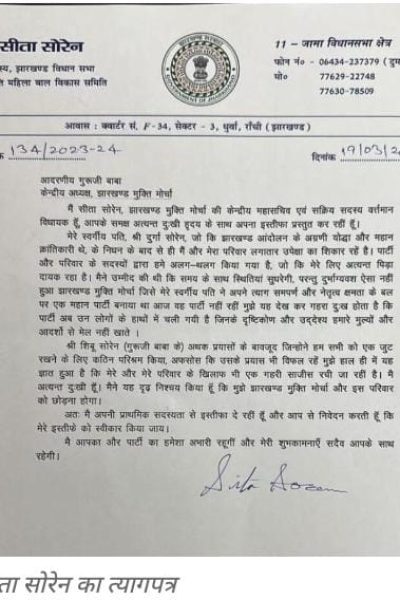 सीता सोरेन
स्य, झारखण्ड विधान सभा
ति महिला बाल विकास समिति
11 - जामा विधानसभा क्षेत्र
फोन नं० - 06434-237379 (दुम
मो० 77629-22748
77630-78509
आवास : क्वार्टर सं. F-34, सेक्टर - 3, धुर्वा, राँची (झारखण्ड)
क 134/2023-24
दिनांक 19/03/2
आदरणीय गुरूजी बाबा
केन्द्रीय अध्यक्ष, झारखण्ड मुक्ति मोर्चा
मैं सीता सोरेन, झारखण्ड मुक्ति मोर्चा की केन्द्रीय महासचिव एवं सक्रिय सदस्य वर्तमान
विधायक हूँ, आपके समक्ष अत्यन्त दुःखी हृदय के साथ अपना इस्तीफा प्रस्तुत कर रहीं हूँ।
मेरे स्वर्गीय पति, श्री दुर्गा सोरेन, जो कि झारखण्ड आंदोलन के अग्रणी योद्धा और महान
क्रांतिकारी थे, के निधन के बाद से ही मैं और मेरा परिवार लगातार उपेक्षा का शिकार रहें है। पार्टी
और परिवार के सदस्यों द्वारा हमे अलग-थलग किया गया है, जो कि मेरे लिए अत्यन्त पिड़ा
दायक रहा है। मैंने उम्मीद की थी कि समय के साथ स्थितियां सुधरेगी, परन्तु दुर्भाग्यवश ऐसा नहीं
हुआ झारखण्ड मुक्ति मोर्चा जिसे मेरे स्वर्गीय पति ने अपने त्याग समपर्ण और नेतृत्व क्षमता के बल
पर एक महान पार्टी बनाया था आज वह पार्टी नहीं रहीं मुझे यह देख कर गहरा दुःख होता है कि
पार्टी अब उन लोगों के हाथों में चली गयी है जिनके दृष्टिकोण और उद्देश्य हमारे मुल्यों और
आदर्शो से मेल नहीं खाते ।
श्री शिबू सोरेन (गुरूजी बाबा के) अथक प्रयासों के बावजूद जिन्होंने हम सभी को एक जुट
रखने के लिए कठिन परिश्रम किया, अफसोस कि उसके प्रयास भी विफल रहें मुझे हाल ही में यह
ज्ञात हुआ है कि मेरे और मेरे परिवार के खिलाफ भी एक गहरी साजीस रची जा रही है। मैं
अत्यन्त दुःखी हूँ। मैंने यह दृढ़ निश्चय किया है कि मुझे झारखण्ड मुक्ति मोर्चा और इस परिवार
को छोड़ना होगा।
अतः मैं अपनी प्राथमिक सदस्यता से इस्तीफा दे रहीं हूँ और आप से निवेदन करती हूँ कि
मेरे इस्तीफे को स्वीकार किया जाय।
मै आपका और पार्टी का हमेशा अभारी रहूगीं और मेरी शुभकामनाएँ सदैव आपके साथ
रहेगी।
Sita Soren
ता सोरेन का त्यागपत्र